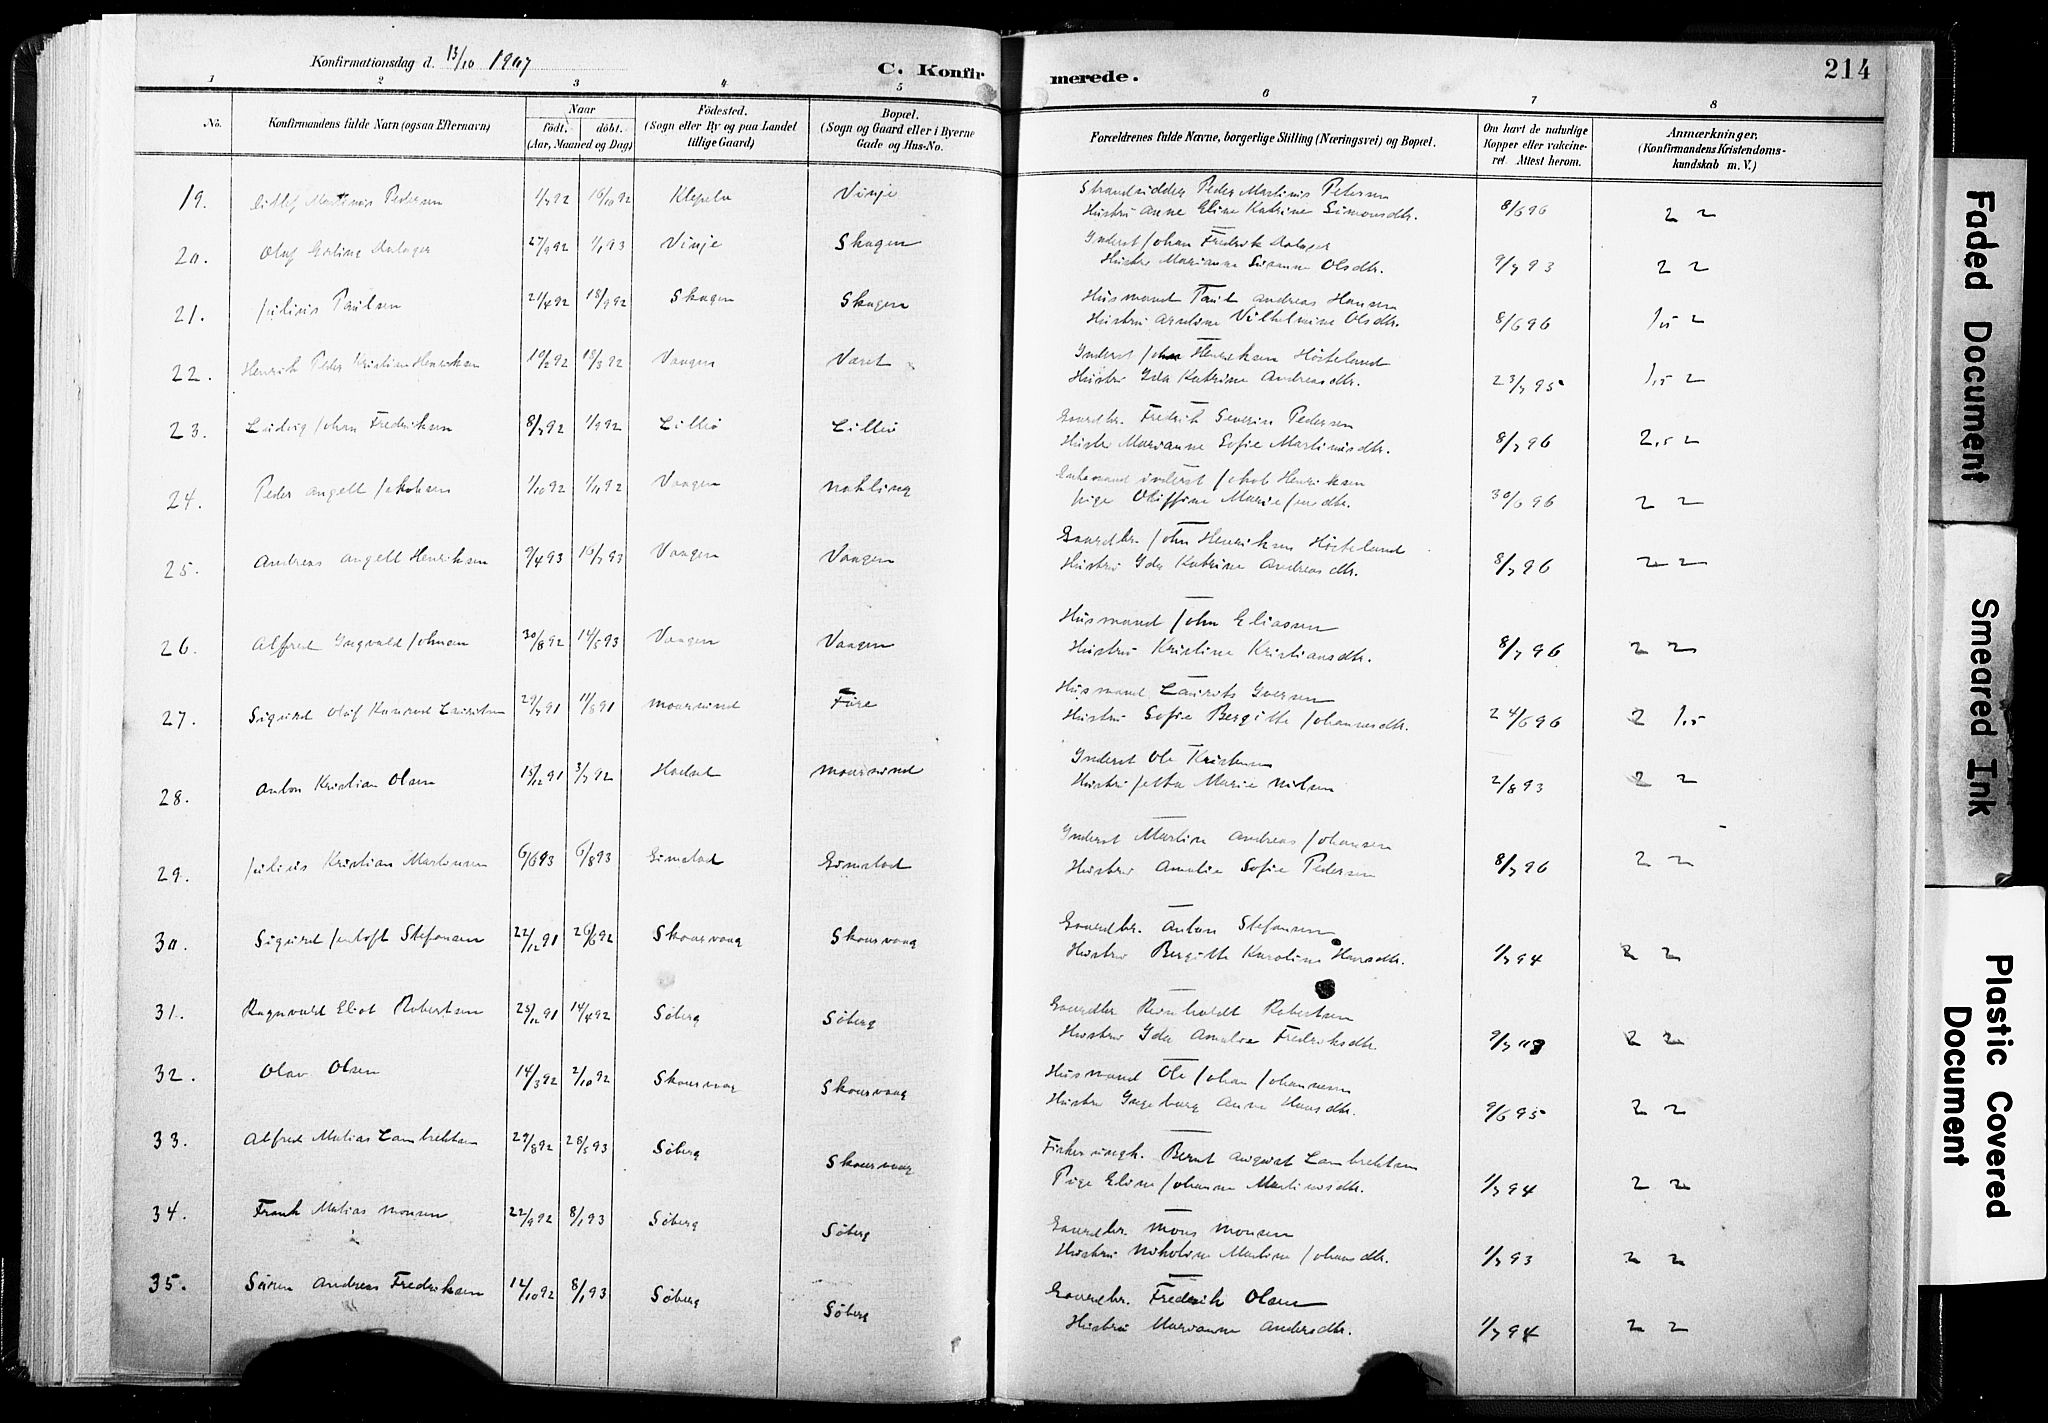 Konfirmationsdag d. 13/10 1907
C. Konfirmerede.
214
1 2 3 4 5 6 7 8
No.
Konfirmandens fulde Navn (ogsaa Efternavn)
Naar
födt. döbt.
(Aar, Maaned og Dag)
Födested.
(Sogn eller By og paa Landet
tillige Gaard)
Bopæl.
(Sogn og Gaard eller i Byerne
Gade og Hus-No.
Forældrenes fulde Navne, borgerlige Stilling (Næringsvei) og Bopæl.
Om havt de naturlige
Kopper eller vakcine-
ret. Attest herom.
Anmærkninger.
(Konfirmandens Kristendoms-
kundskab m. V.)
19. Ditlef Martinus Pedersen 1/7 92 16/10 92 Klepela Vinje Strandsidder Peder Martinus Petersen
Hustru Anne Eline Katrine Simonsdtr. 8/6 96 2 2
20. Olaf Dalager 27/9 92 1/1 93 Vinje Skagen Inderst Johan Fredrik Dalager
Hustru Marianne Susanne Olsdtr. 9/7 93 2 2
21. Julius Paulsen 21/4 92 18/9 92 Skagen Skagen Husmand Paul Andreas Hansen
Hustru Vilhelmine Olsdtr. 8/6 96 1,5 2
22. Henrik Peder Kristian Henriksen 19/2 92 18/3 92 Vaagen Været Inderst John Henriksen Hösteland
Hustru Ida Katrine Andreasdtr. 23/7 95 1,5 2
23. Ludvig Johan Fredriksen 8/7 92 1/9 92 Lillö Lillö Gaardbr. Fredrik Severin Pedersen
Hustru Marianne Sofie Martinusdtr. 8/7 96 2,5 2
24. Peder Angell Jakobsen 1/10 92 1/11 92 Vaagen Enkemand inderst Jakob Henriksen
Pige Marie 30/6 96 2 2
25. Andreas Angell Henriksen 9/4 93 16/7 93 Vaagen Vaagen Gaardbr. John Henriksen Hösteland
Hustru Ida Katrine Andreasdtr. 8/7 96 2 2
26. Alfred Ingvald Johnsen 30/8 92 14/5 93 Vaagen Vaagen Husmand John Eliassen
Hustru Kristine Kristiansdtr. 8/7 96 2 2
27. Sigurd Oluf Konrad Lauritsen 29/7 91 11/8 91 Maarsund Före Husmand Laurits Iversen
Hustru Sofie Bergitte Johannesdtr. 24/6 96 2 1,5
28. Anton Kristian Olsen 15/12 91 3/7 92 Hadsel Maarsund Inderst Ole Kristensen
Hustru Jetta Marie Nilsen 2/8 93 2 2
29. Julius Kristian Martinsen 6/6 93 6/8 93 Gimstad Gimstad Inderst Martin Andreas Johansen
Hustru Amalie Sofie Pedersen 8/7 96 2 2
30. Sigurd Jentoft Stefansen 22/12 91 26/6 92 Skaarvaag Skaarvaag Gaardbr. Anton Stefansen
Hustru Bergitte Karoline Hansdtr. 1/7 94 2 2
31. Ragnvald Eliot Robertsen 25/12 91 14/4 92 Söberg Söberg Gaardbr Reinholdt Robertsen
Hustru Ida Amalie Fredriksdtr. 2 2
32. Olav Olsen 14/3 92 2/10 92 Skaarvaag Skaarvaag Husmand Ole Johan Johannesen
Hustru Ingeborg Anna Hansdtr. 9/6 95 2 2
33. Alfred Matias Lambrektsen 29/8 92 28/5 93 Söberg Skaarvaag Fisker ungk. Bernt August Lambrektsen
Pige Eline Johanna Martinusdtr. 1/7 94 2 2
34. Frank Matias Monsen 22/9 92 8/1 93 Söberg Söberg Gaardbr. Mons Monsen
Hustru Nikoline Martine Johansdtr. 1/7 93 2 2
35. Sören Andreas Fredriksen 14/10 92 8/1 93 Söberg Söberg Gaardbr. Fredrik Olsen
Hustru Marianne Andersdtr. 1/7 94 2 2
Faded Document
Smeared Ink
Plastic Covered
Document